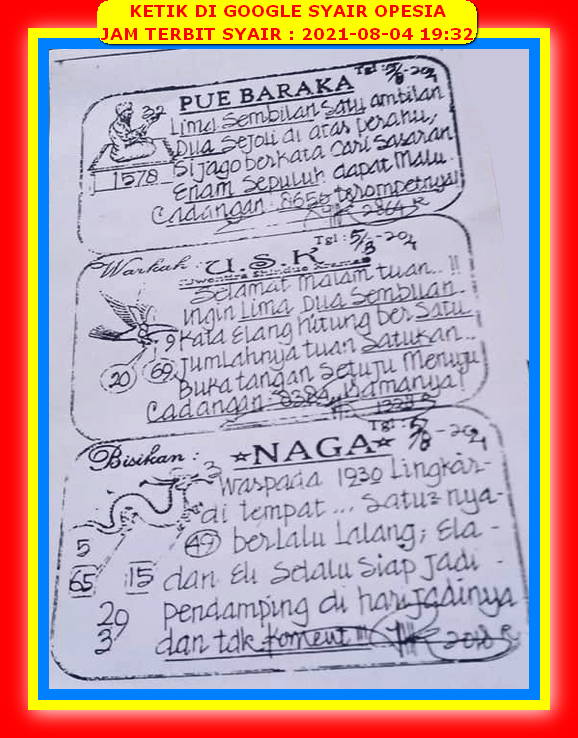 KETIK DI GOOGLE SYAIR OPESIA
JAM TERBIT SYAIR : 2021-08-04 19:32
Tgl : 5/8-2021
PUE BARAKA
32
1578
Lima Sembilan Satu ambilan
Dua Sejoli di atas Perahu,
Si jago berkata Cari Sasaran
Enam Sepuluh dapat Malu.
Cadangan : terompetnya!
2864 R
Tgl : 5/8-2021
Warkah : U.S.K
Selamat Malam tuan.. !!
ingin Lima Dua Sembilan.
9 Kata Elang hitung ber Satu
Jumlahnya tuan Satukan..
20
69
Buka tangan Setuju Menuju
Cadangan : 8384 namanya!
1328 R
Tgl : 5/8-2021
Bisikan : ☆NAGA☆
3
Waspada 1930 Lingkar-
di tempat... Satu2 nya-
49 berlalu Lalang; Ela -
dan Eli Selalu Siap Jadi -
Pendamping di hari Jadinya
dan tdk Koment !!!
5
65
15
29
3
R